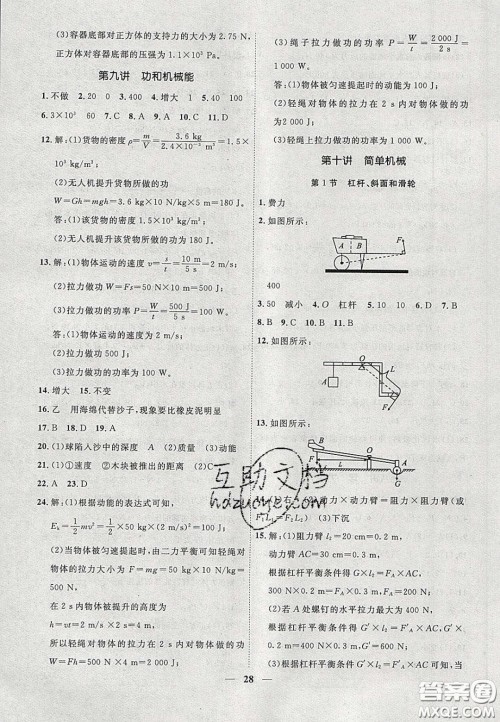 (3)容器底部对正方体的支持力约为 2.75 N,
正方体对容器底部的压强为 1.1×10³ Pa.
第九讲 功和机械能
1.不做 2.20 0 3.400 4.增大 1 5.40 100
6.3×10³ 60 7.D 8.C 9.D 10.C 11.D
12.解:(1)货物的密度 ρ=m/V=3.6 kg/2.4×10⁻³ m³=1.5×
10³ kg/m³
(2)无人机提升货物所做的功
W=Gh=mgh=3.6 kg×10 N/kg×5 m=180 J.
答:(1)货物的密度 1.5×10³ kg/m³;
(2)无人机提升货物所做的功为 180 J.
13.解:(1)物体运动的速度 v=s/t=10 m/5 s=2 m/s
(2)拉力做的功 W=Fs=50 N×10 m=500 J
(3)拉力做功的功率 P=W/t=500 J/5 s=100 W.
答:(1)物体运动的速度为 2 m/s;
(2)拉力做的功为 500 J;
(3)拉力做功的功率为 100 W.
14.增大 15.不变
16.乙 用海绵代替沙子,现象要比橡皮泥明显
17.B 18.A 19.D
20.(1)球陷入沙中的深度 (2)质量 (3)动能
21.(1)①速度 ②木块被推出的距离 (2)质量
22.A 23.D
24.解:(1)根据动能的表达式可知,
Eₖ=1/2 mv²=1/2×50 kg×(2 m/s)²=100 J
(2)当物体被匀速提起时,由二力平衡可知轻绳对
物体的拉力大小为 F=G=mg=50 kg×10 N/kg=
500 N
在 2 s 内物体被提升的高度为
h=vt=2 m/s×2 s=4 m
所以轻绳对物体的拉力在 2 s 内对物体所做的功为
W=Fh=500 N×4 m=2 000 J
(3)绳子拉力做功的功率 P=W/t=2 000 J/2 s=
1 000 W.
答:(1)物体被匀速提起时的动能为 100 J;
(2)轻绳对物体的拉力在 2 s 内对物体所做的功为
2 000 J;
(3)轻绳上拉力做功的功率为 1 000 W.
第十讲 简单机械
第 1 节 杠杆、斜面和滑轮
1.费力
2.如图所示:
A B F
400
3.50 减小 4.O 杠杆 5.10 10 6.D 7.B
8.B 9.C 10.A 11.D
12.如图所示:
O L F
13.如图所示:
O A F L
互助文档
hdzuoye.com
(2)右 (3)动力×动力臂=阻力×阻力臂(或
F₁L₁=F₂L₂) (3)下沉
15.解:(1)阻力臂 l₂=20 cm=0.2 m,
动力臂 AC=30 cm=0.3 m,
根据杠杆平衡条件得:G×l₂=Fₐ×AC,
即:300 N×0.2 m=Fₐ×0.3 m,
解得:Fₐ=200 N
(2)若 A 处螺钉的水平拉力最大为 400 N,
根据杠杆平衡条件得:G′×l₂=F′ₐ×AC,
即:G′×0.2 m=400 N×0.3 m,
解得:G′=600 N
(3)根据杠杆平衡条件得:G′×l₂=F′ₐ×AC,当
28
答案圈
MXQE.COM